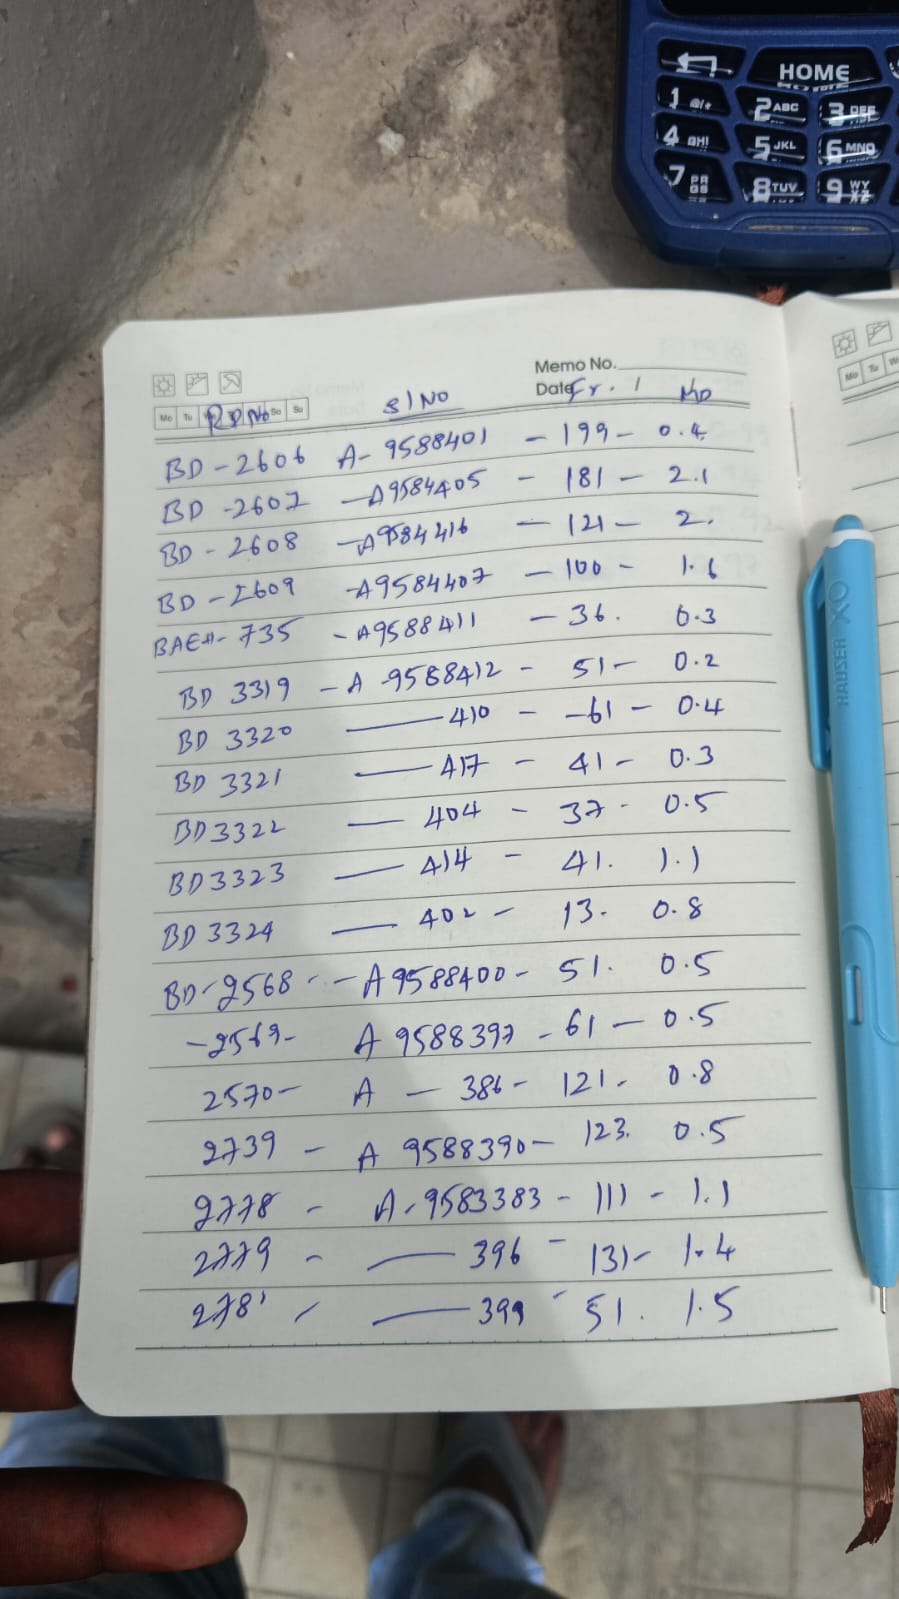 HOME
1 @/+ 2 ABC 3 DEF
4 GHI 5 JKL 6 MNO
7 PR QS 8 TUV 9 WY XZ
Memo No.
Date Fr. 1 MD
Mo Tu Sa Su
RD No Sl No
Mo Tu We
BD-2606 A-9588401 - 199 - 0.4
BD-2607 -A9584405 - 181 - 2.1
BD-2608 -A9584416 - 121 - 2.
BD-2609 -A9584407 - 100 - 1.6
BAEH-735 -A9588411 - 36. 0.3
BD 3319 - A 9588412 - 51 - 0.2
BD 3320 —— 410 - -61 - 0.4
BD 3321 —— 417 - 41 - 0.3
BD 3322 —— 404 - 37 - 0.5
BD 3323 —— 414 - 41. 1.1
BD 3324 —— 402 - 13. 0.8
BD-2568 - -A9588400 - 51. 0.5
-2569- A 9588397 - 61 - 0.5
2570- A - 386 - 121. 0.8
2739 - A 9588390 - 123. 0.5
2778 - A-9583383 - 111 - 1.1
2779 - —— 396 - 131 - 1.4
278' - —— 399 - 51. 1.5
HAUSER XO